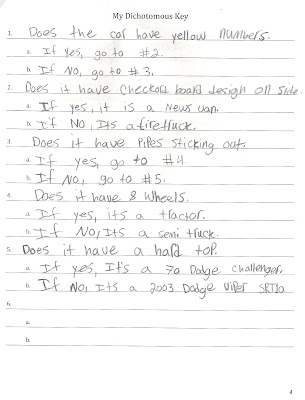 My Dichotomous Key
1. Does the car have yellow numbers.
a. If yes, go to #2.
b. If No, go to #3.
2. Does it have checkerd board design on side.
a. If yes, it is a News van.
b. If No, Its a firetruck.
3. Does it have Pipes sticking out.
a. If yes, go to #4.
b. If No, go to #5.
4. Does it have 8 wheels.
a. If yes, its a tractor.
b. If No, Its a semi truck.
5. Does it have a hard top.
a. If yes, It's a 70 Dodge challenger.
b. If No, Its a 2003 Dodge Viper SRT10
6.
a.
b.
4